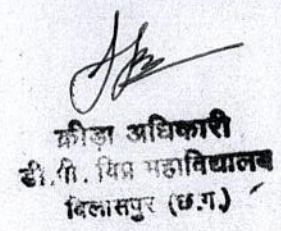 क्रीड़ा अधिकारी
डी.पी. विप्र महाविद्यालय
बिलासपुर (छ.ग.)